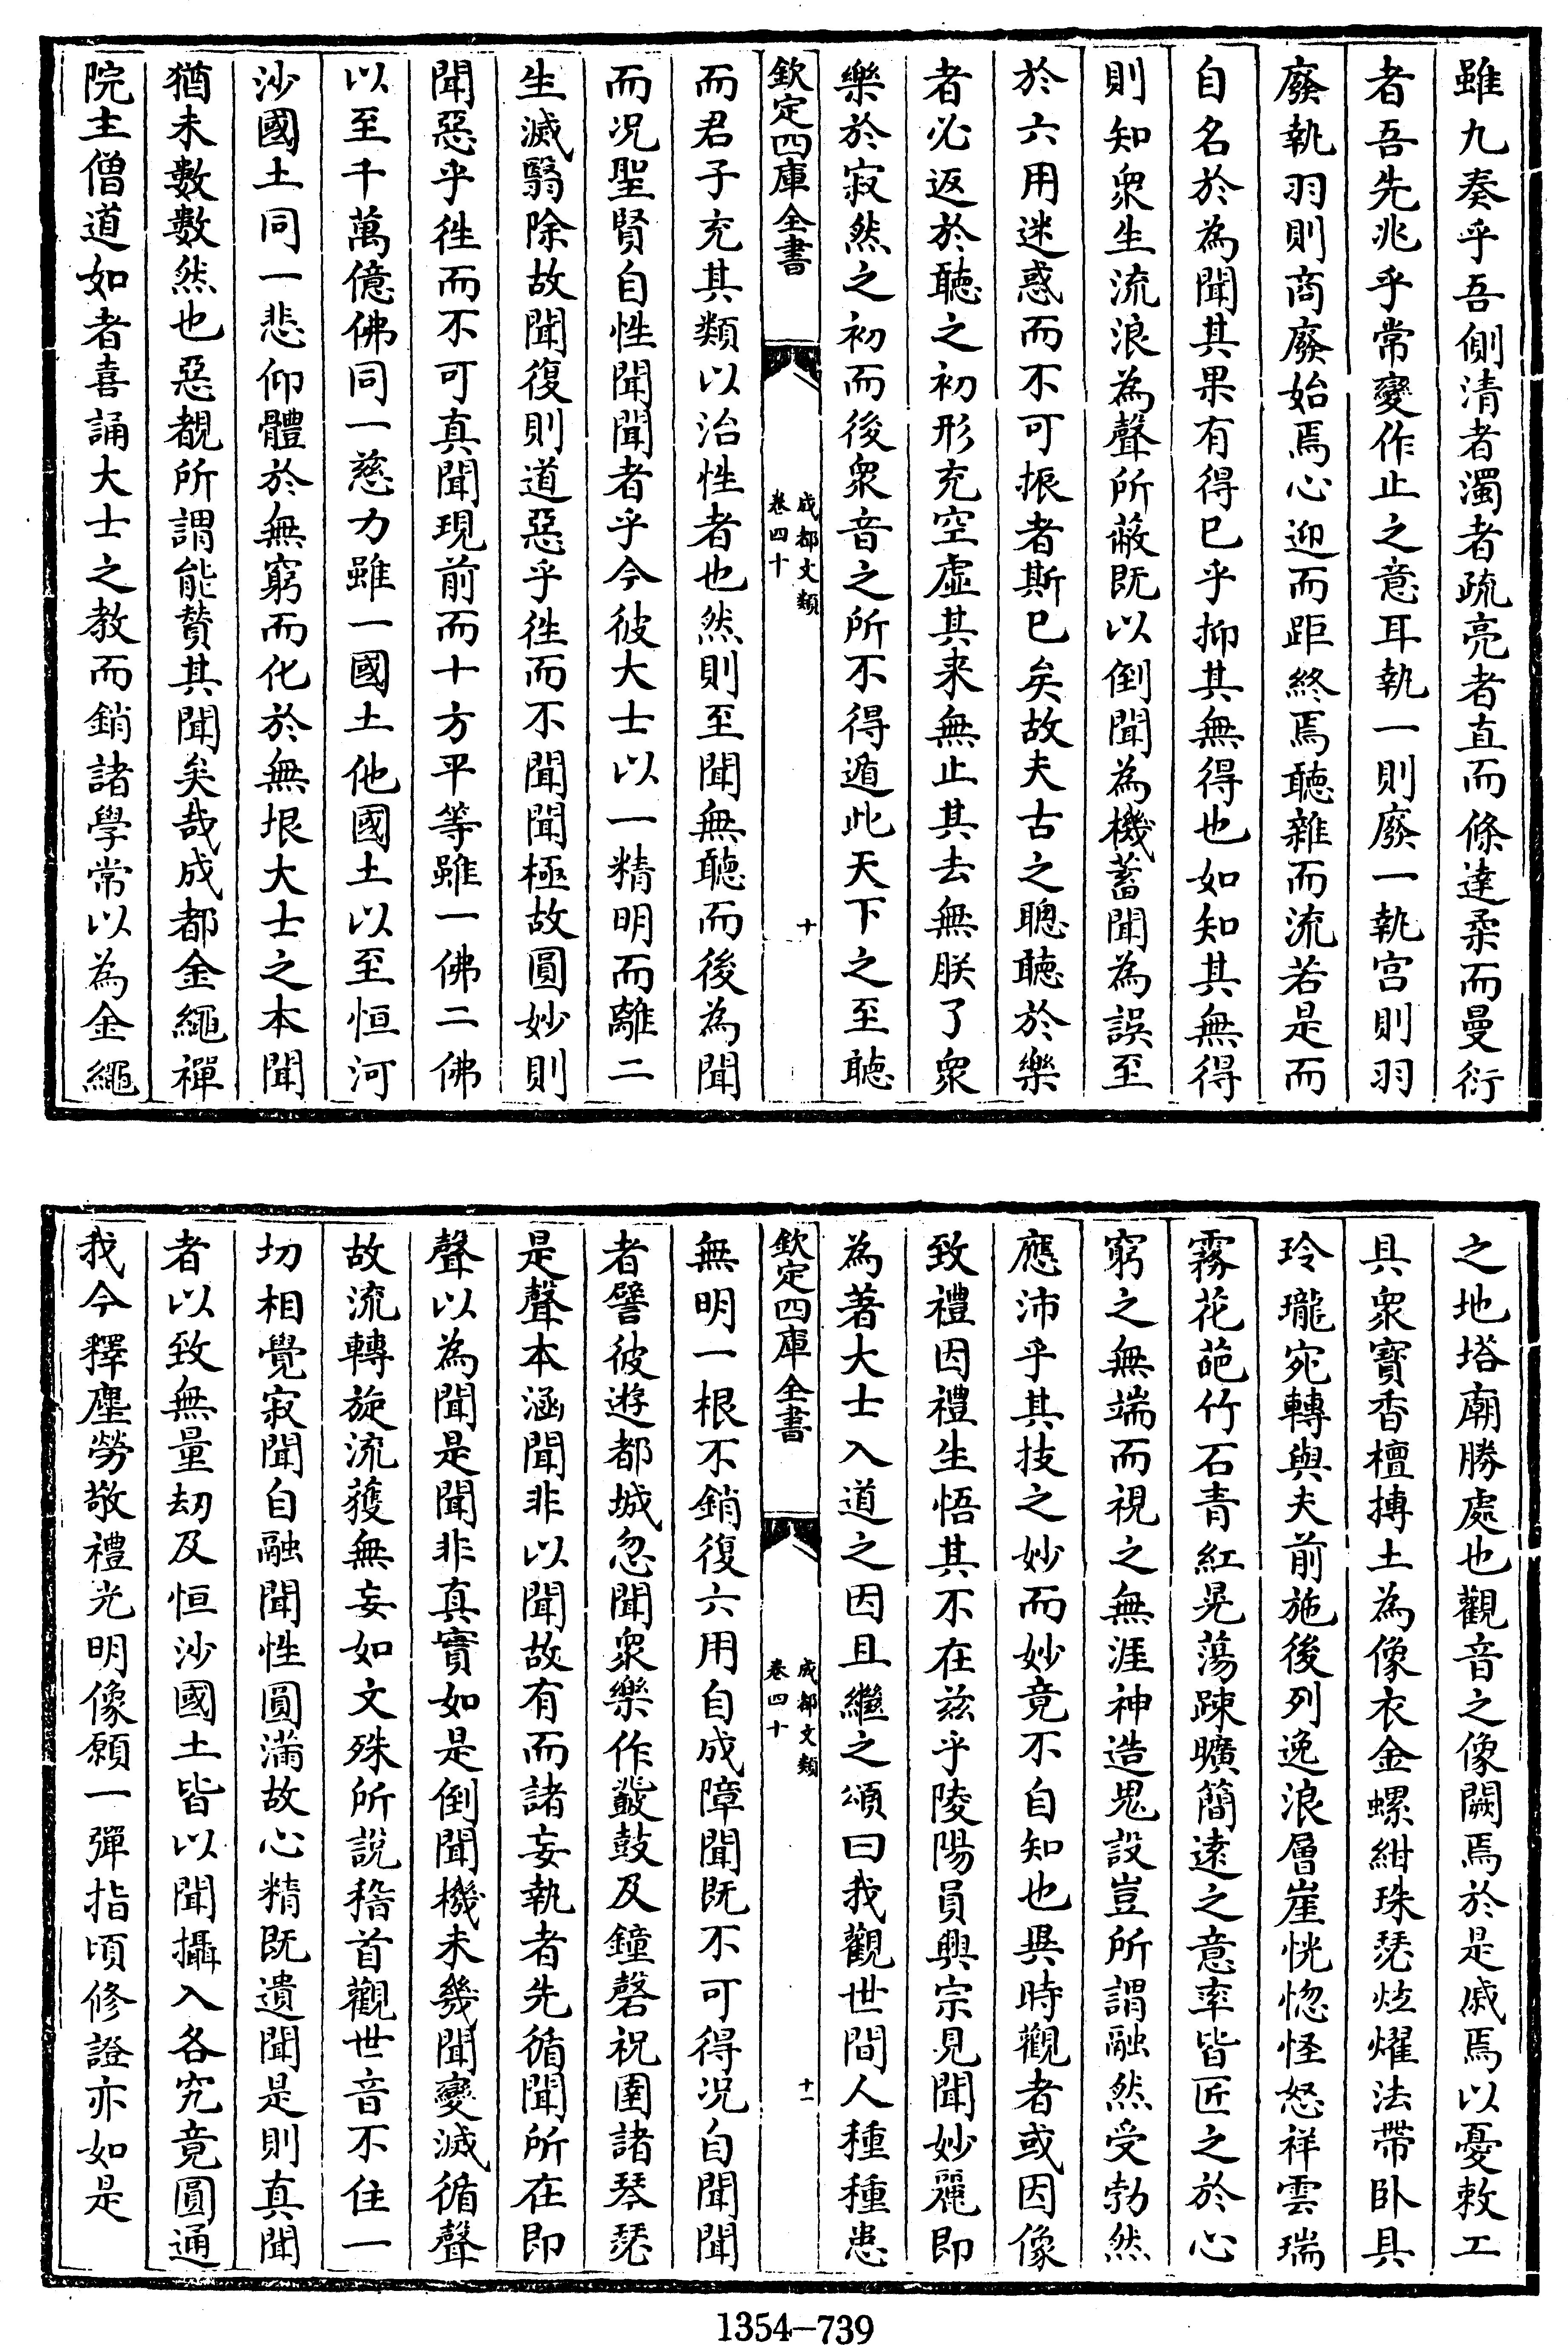 雖九奏乎吾側清者濁者疏亮者直而條達柔而曼衍
者吾先兆乎常變作止之意耳執一則廢一執宫則羽
廢執羽則商廢始焉心迎而距終焉聽雜而流若是而
自名於為聞其果有得已乎抑其無得也如知其無得
則知衆生流浪為聲所蔽既以倒聞為機蓄聞為誤至
於六用迷惑而不可振者斯已矣故夫古之聰聽於樂
者必返於聽之初形充空虛其來無止其去無朕了衆
樂於寂然之初而後衆音之所不得遁此天下之至聽
欽定四庫全書
成都文類
卷四十
十
而君子充其類以治性者也然則至聞無聽而後為聞
而况聖賢自性聞聞者乎今彼大士以一精明而離二
生滅翳除故聞復則道惡乎徃而不聞聞極故圓妙則
聞惡乎徃而不可真聞現前而十方平等雖一佛二佛
以至千萬億佛同一慈力雖一國土他國土以至恒河
沙國土同一悲仰體於無窮而化於無垠大士之本聞
猶未數數然也惡覩所謂能賛其聞矣哉成都金繩禪
院主僧道如者喜誦大士之教而銷諸學常以為金繩
之地塔廟勝處也觀音之像闕焉於是戚焉以憂敕工
具衆寳香檀摶土為像衣金螺紺珠瑟炫燿法帶卧具
玲瓏宛轉與夫前施後列逸浪層崖恍惚怪怒祥雲瑞
霧花葩竹石青紅晃蕩踈曠簡逺之意率皆匠之於心
窮之無端而視之無涯神造鬼設豈所謂融然受勃然
應沛乎其技之妙而妙竟不自知也異時觀者或因像
致禮因禮生悟其不在兹乎陵陽員興宗見聞妙麗即
為著大士入道之因且繼之頌曰我觀世間人種種患
欽定四庫全書
成都文類
卷四十
十一
無明一根不銷復六用自成障聞既不可得况自聞聞
者譬彼遊都城忽聞衆樂作鼗鼓及鐘磬柷圉諸琴瑟
是聲本涵聞非以聞故有而諸妄執者先循聞所在即
聲以為聞是聞非真實如是倒聞機未幾聞變滅循聲
故流轉旋流獲無妄如文殊所說稽首觀世音不住一
切相覺寂聞自融聞性圓滿故心精既遺聞是則真聞
者以致無量刼及恒沙國土皆以聞攝入各究竟圓通
我今釋塵勞敬禮光明像願一彈指頃修證亦如是
1354—739